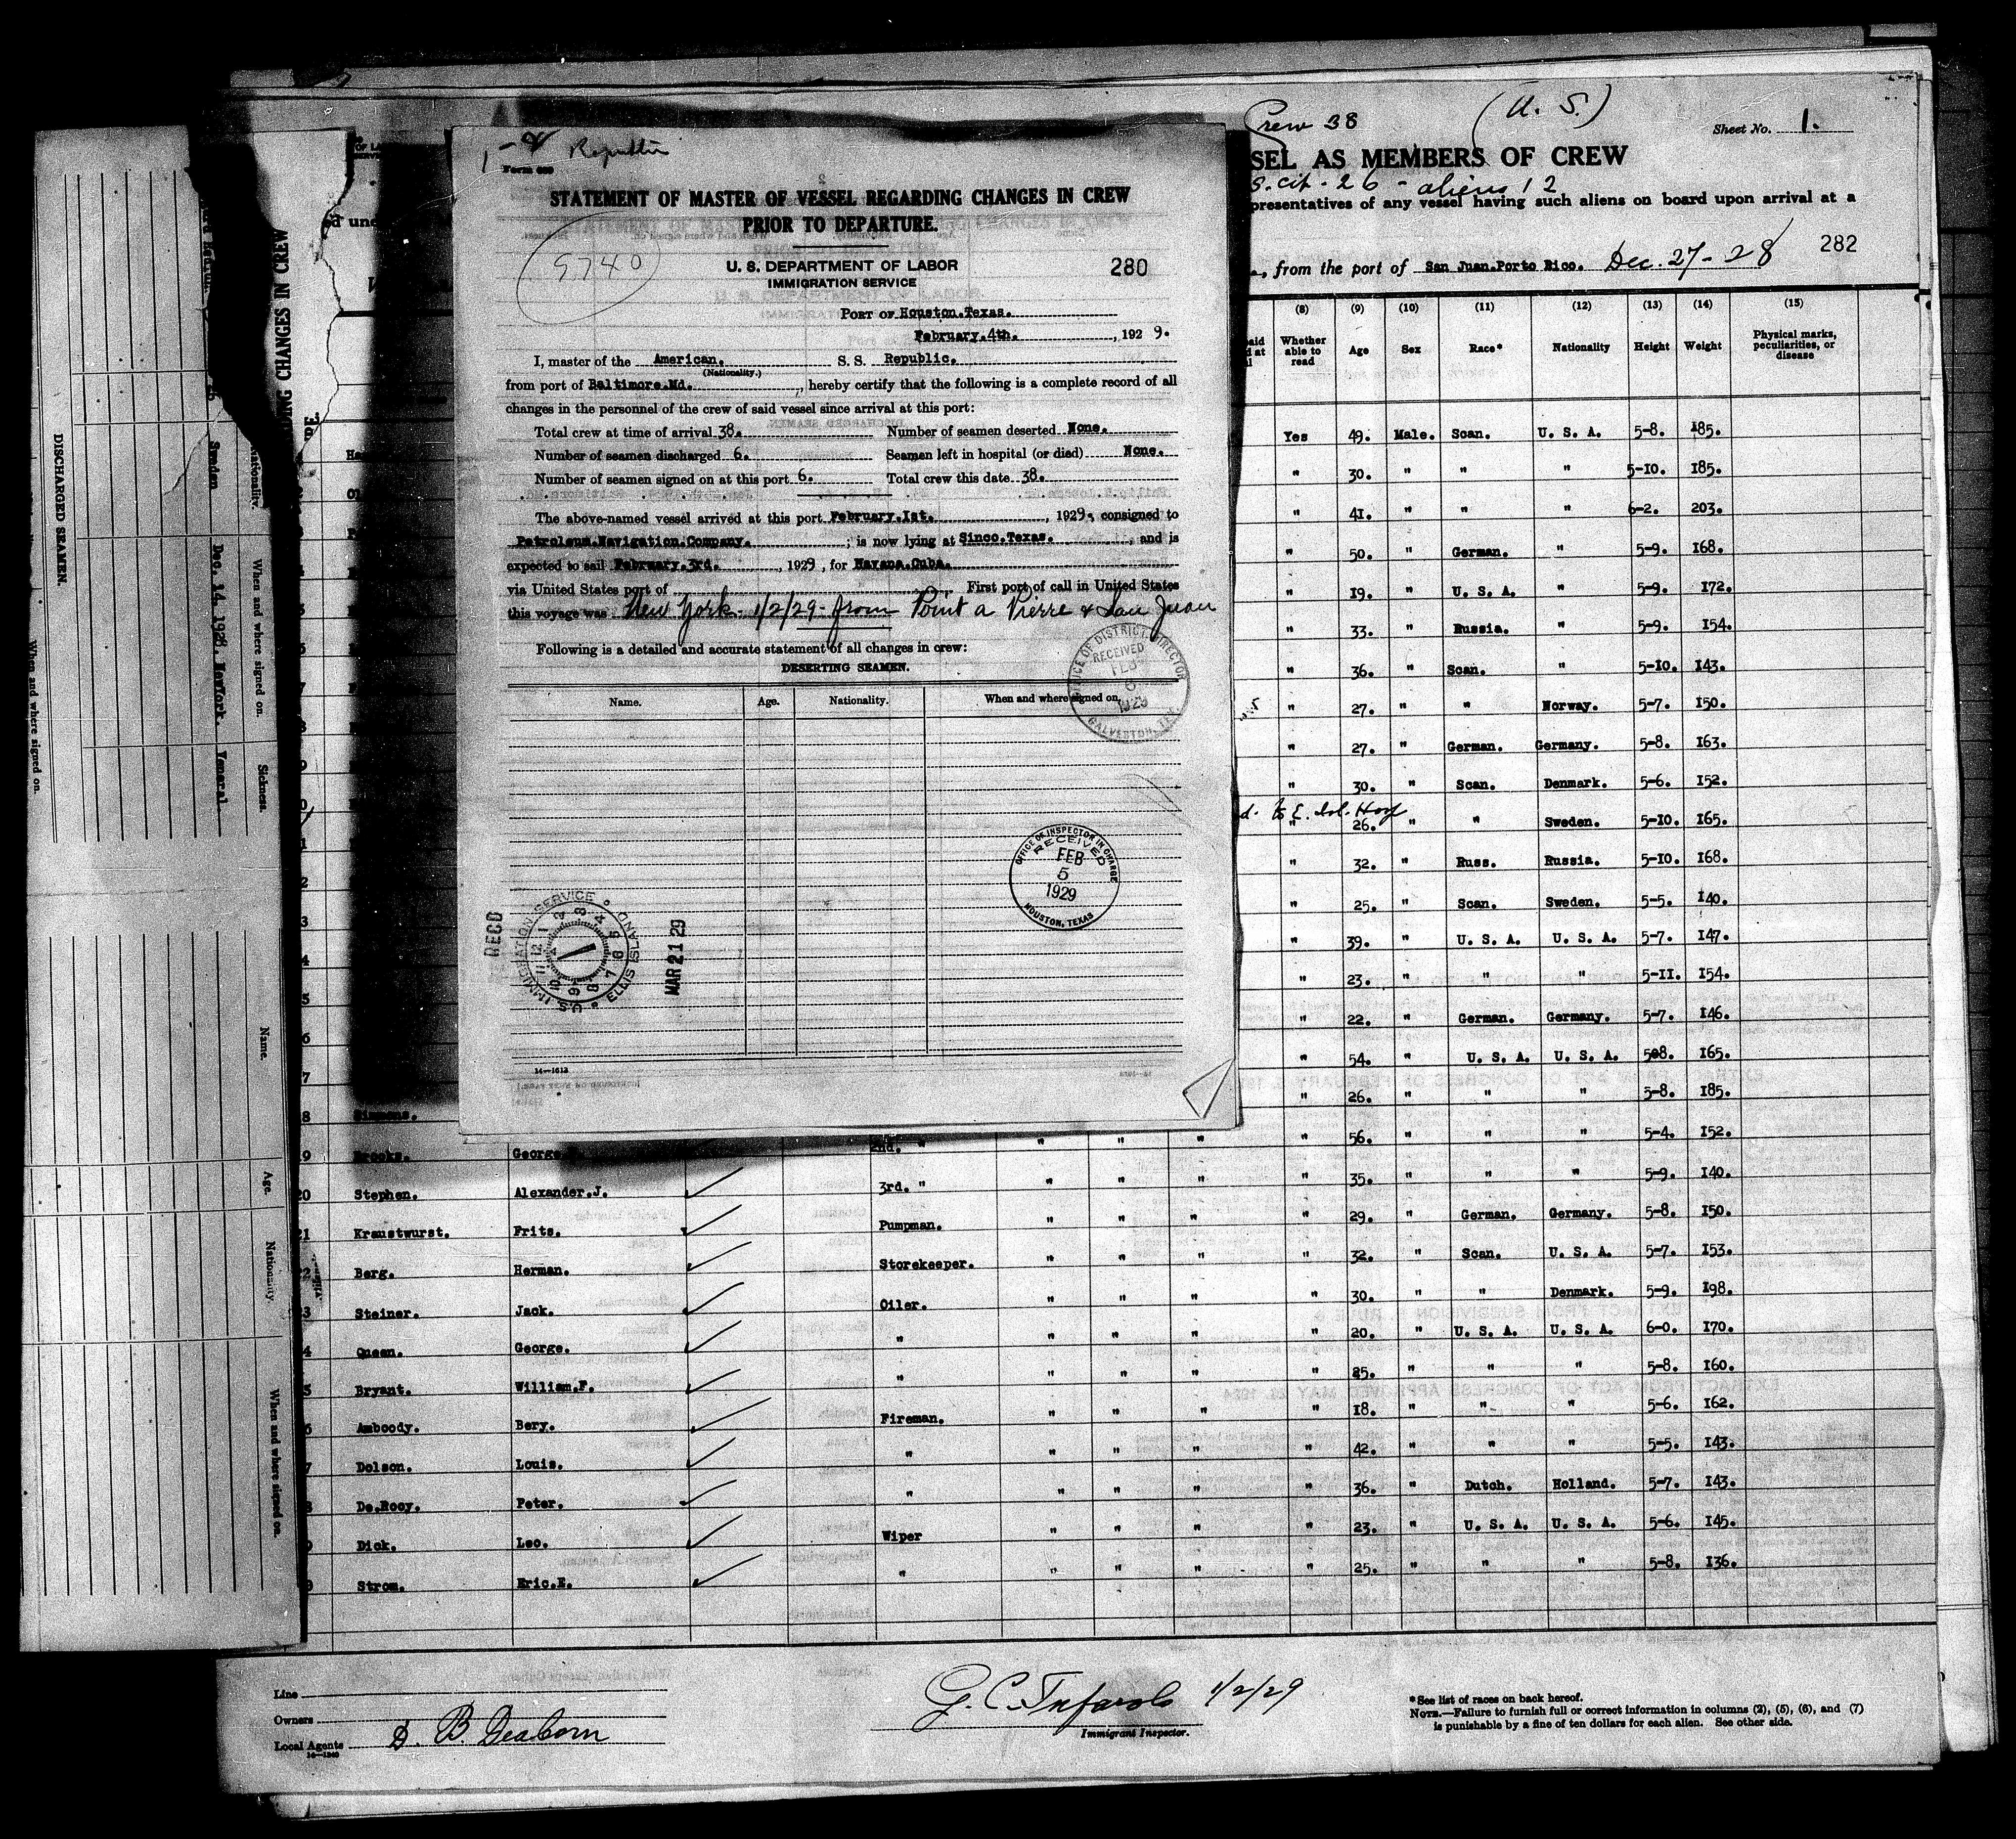 Republic
Form 689
STATEMENT OF MASTER OF VESSEL REGARDING CHANGES IN CREW
PRIOR TO DEPARTURE.
5740
U. S. DEPARTMENT OF LABOR
IMMIGRATION SERVICE
280
PORT OF Houston.Texas.
February.4th. , 192 9.
I, master of the American. S. S. Republic.
(Nationality.)
from port of Baltimore.Md. , hereby certify that the following is a complete record of all
changes in the personnel of the crew of said vessel since arrival at this port:
Total crew at time of arrival 38. Number of seamen deserted None.
Number of seamen discharged 6. Seamen left in hospital (or died) None.
Number of seamen signed on at this port 6. Total crew this date 38.
The above-named vessel arrived at this port February.Ist. , 1929. consigned to
Petroleum.Navigation.Company. ; is now lying at Sinco.Texas. , and is
expected to sail February.3rd. , 1929 , for Havana.Cuba.
via United States port of . First port of call in United States
this voyage was New York - 1/2/29 - from Point a Pierre & San Juan
Following is a detailed and accurate statement of all changes in crew:
DESERTING SEAMEN.
Name. Age. Nationality. When and where signed on.
OFFICE OF DISTRICT DIRECTOR
RECEIVED
FEB
6
1929
GALVESTON, TEX.
OFFICE OF INSPECTOR IN CHARGE
RECEIVED
FEB
5
1929
HOUSTON, TEXAS
RECD
U.S. IMMIGRATION SERVICE
ELLIS ISLAND
MAR 21 29
14—1613
Crew 38 (U. S.)
Sheet No. 1.
SEL AS MEMBERS OF CREW
S. cit - 26 - aliens 12
presentatives of any vessel having such aliens on board upon arrival at a
282
, from the port of San Juan.Porto Rico. Dec. 27 - 28
(8) (9) (10) (11) (12) (13) (14) (15)
Whether able to read Age Sex Race* Nationality Height Weight Physical marks, peculiarities, or disease
Yes 49. Male. Scan. U. S. A. 5-8. I85.
" 30. " " " 5-IO. I85.
" 4I. " " " 6-2. 203.
" 50. " German. " 5-9. I68.
" I9. " U. S. A. " 5-9. I72.
" 33. " Russia. " 5-9. I54.
" 36. " Scan. " 5-IO. I43.
" 27. " " Norway. 5-7. I50.
" 27. " German. Germany. 5-8. I63.
" 30. " Scan. Denmark. 5-6. I52.
" 26. " " Sweden. 5-IO. I65.
" 32. " Russ. Russia. 5-IO. I68.
" 25. " Scan. Sweden. 5-5. I40.
" 39. " U. S. A. U. S. A. 5-7. I47.
" 23. " " " 5-II. I54.
" 22. " German. Germany. 5-7. I46.
" 54. " U. S. A. U. S. A. 5-8. I65.
Simmons. " 26. " " " 5-8. I85.
Brooks. George 2nd. " " " " " 56. " " " 5-4. I52.
20 Stephen. Alexander.J. 3rd. " " " " " 35. " " " 5-9. I40.
Kraustwurst. Frits. Pumpman. " " " " 29. " German. Germany. 5-8. I50.
Berg. Herman. Storekeeper. " " " " 32. " Scan. U. S. A. 5-7. I53.
Steiner. Jack. Oiler. " " " " 30. " " Denmark. 5-9. I98.
Queen. George. " " " " " 20. " U. S. A. U. S. A. 6-0. I70.
Bryant. William.F. " " " " " 25. " " " 5-8. I60.
Amboody. Bery. Fireman. " " " " I8. " " " 5-6. I62.
Dolson. Louis. " " " " " 42. " " " 5-5. I43.
De.Rooy. Peter. " " " " " 36. " Dutch. Holland. 5-7. I43.
Dick. Leo. Wiper " " " " 23. " U. S. A. U. S. A. 5-6. I45.
Strom. Eric.E. " " " " " 25. " " " 5-8. I36.
Line
Owners
Local Agents D. B. Dearborn
1/2/29
Immigrant Inspector.
*See list of races on back hereof.
NOTE.—Failure to furnish full or correct information in columns (2), (5), (6), and (7)
is punishable by a fine of ten dollars for each alien. See other side.
DING CHANGES IN CREW
Nationality. When and where signed on. Sickness.
Sweden Dec. 14. 1928. Norfork. Veneral.
DISCHARGED SEAMEN.
When and where signed on.
Name. Age. Nationality. When and where signed on.